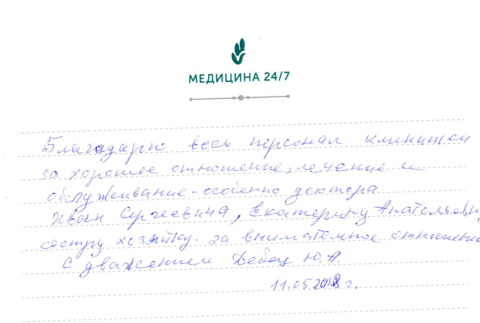 МЕДИЦИНА 24/7
Благодарю весь персонал клиники
за хорошее отношение, лечение и
обслуживание - особенно доктора
Иван Сергеевича, Екатерину Анатольевн
сестру хозяйку. за внимательное отношение
С уважением Ю.А.
11.05.2018 г.